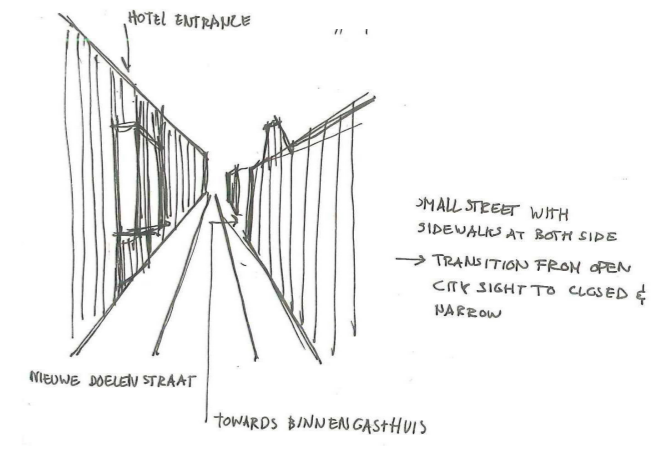 HOTEL ENTRANCE
SMALL STREET WITH
SIDEWALKS AT BOTH SIDE
→ TRANSITION FROM OPEN
CITY SIGHT TO CLOSED &
NARROW
NIEUWE DOELENSTRAAT
TOWARDS BINNENGASTHUIS